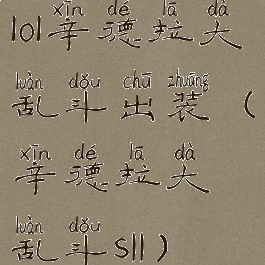 xīn dé lā dà
101辛德拉大
luàn dǒu chū zhuāng
乱斗出装（
xīn dé lā dà
辛德拉大
luàn dǒu
乱斗s11）